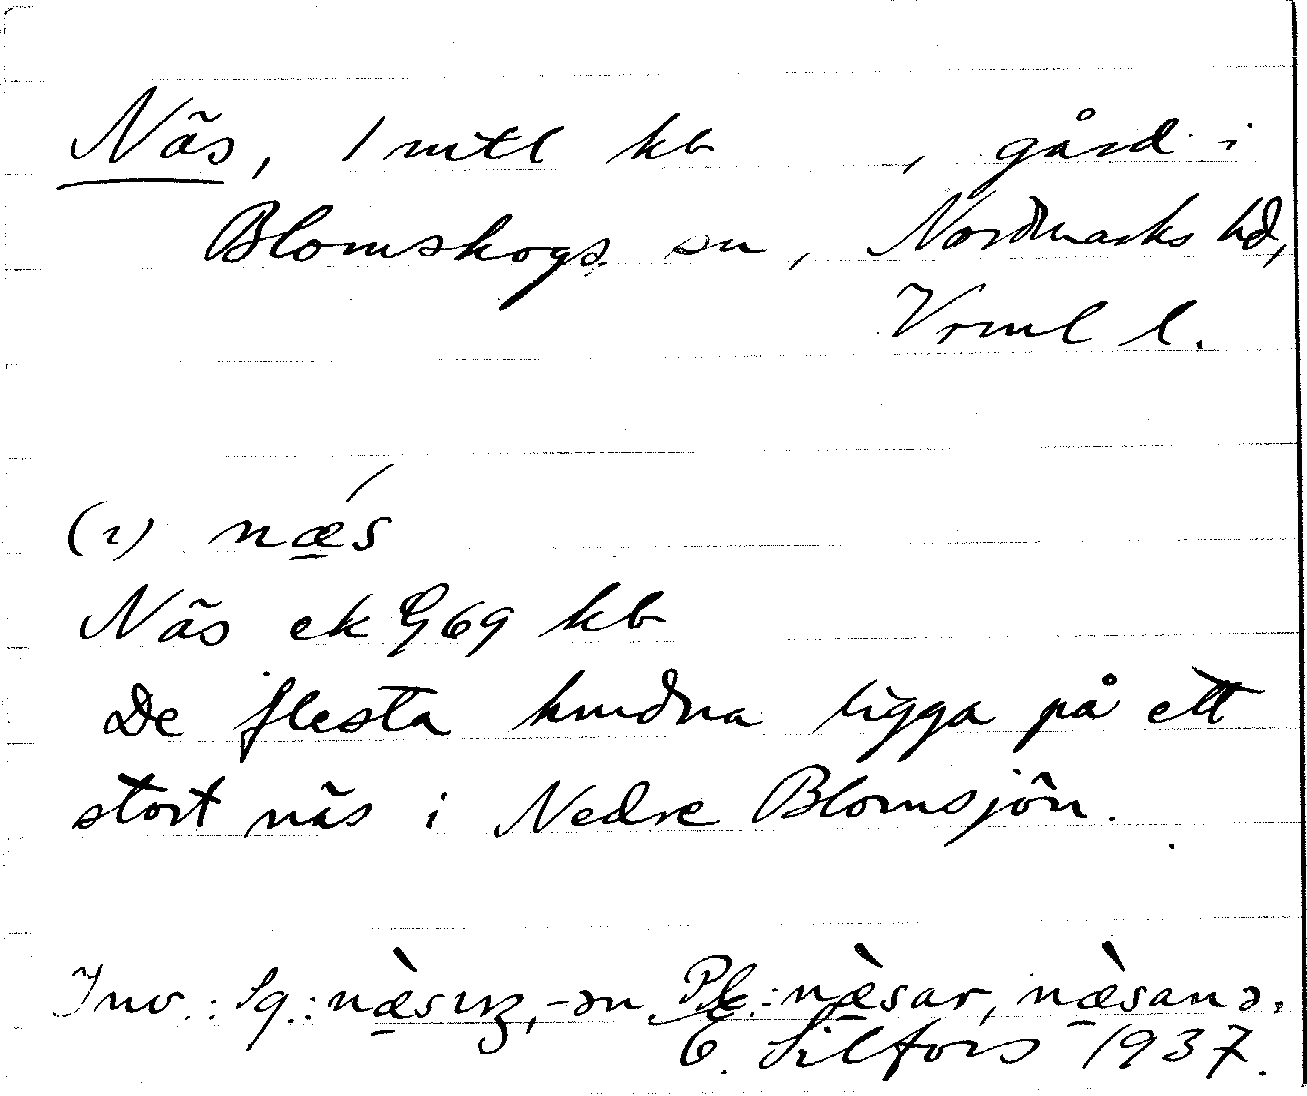 Näs, 1 mtl kb, gård i
Blomskogs sn, Nordmarks hd,
Vrml l.
(i) nǽ̠s
Näs ek G69 kb
De flesta husdna ligga på ett
stort näs i Nedre Blomsjön.
Inv.: Sg.: næ̠̀sıŋ, -ən Pl.: næ̠̀sar, næ̠̀sanə.
E. Silfors 1937.